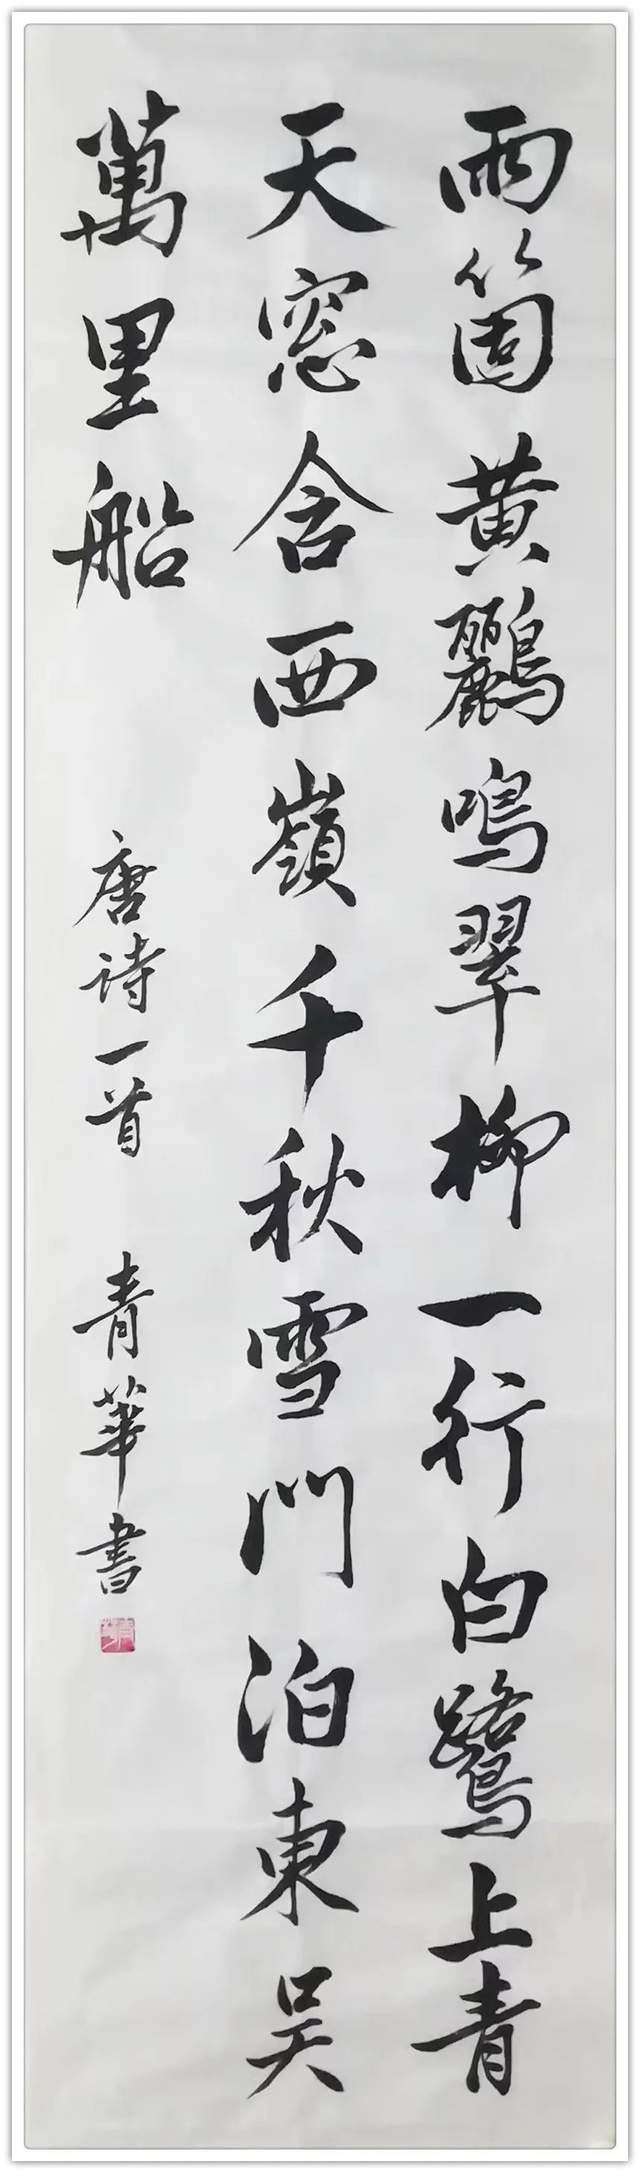 兩箇黃鸝鳴翠柳一行白鷺上青
天窓含西嶺千秋雪門泊東吴
萬里船
唐诗一首 青華書